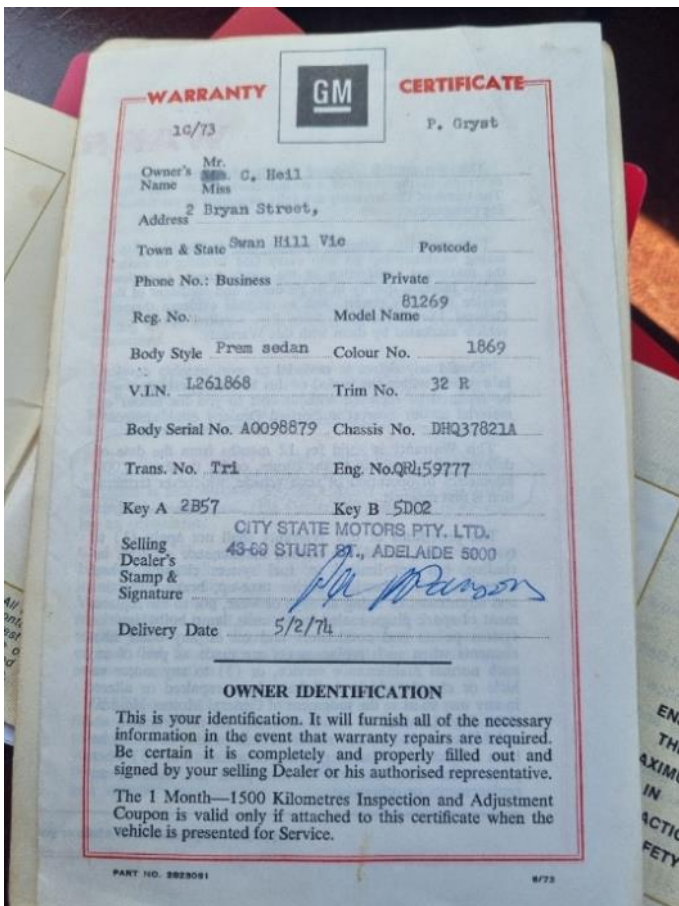 WARRANTY GM CERTIFICATE
10/73 P. Gryst
Mr.
Owner's C. Heil
Name Miss
Address 2 Bryan Street,
Town & State Swan Hill Vic Postcode
Phone No.: Business Private
81269
Reg. No. Model Name
Body Style Prem sedan Colour No. 1869
V.I.N. L261868 Trim No. 32 R
Body Serial No. A0098879 Chassis No. DHQ37821A
Trans. No. Tri Eng. No. QR459777
Key A 2B57 Key B 5D02
CITY STATE MOTORS PTY. LTD.
Selling 43-69 STURT ST., ADELAIDE 5000
Dealer's
Stamp &
Signature
Delivery Date 5/2/74
OWNER IDENTIFICATION
This is your identification. It will furnish all of the necessary
information in the event that warranty repairs are required.
Be certain it is completely and properly filled out and
signed by your selling Dealer or his authorised representative.
The 1 Month—1500 Kilometres Inspection and Adjustment
Coupon is valid only if attached to this certificate when the
vehicle is presented for Service.
PART NO. 2823051 8/73
IN